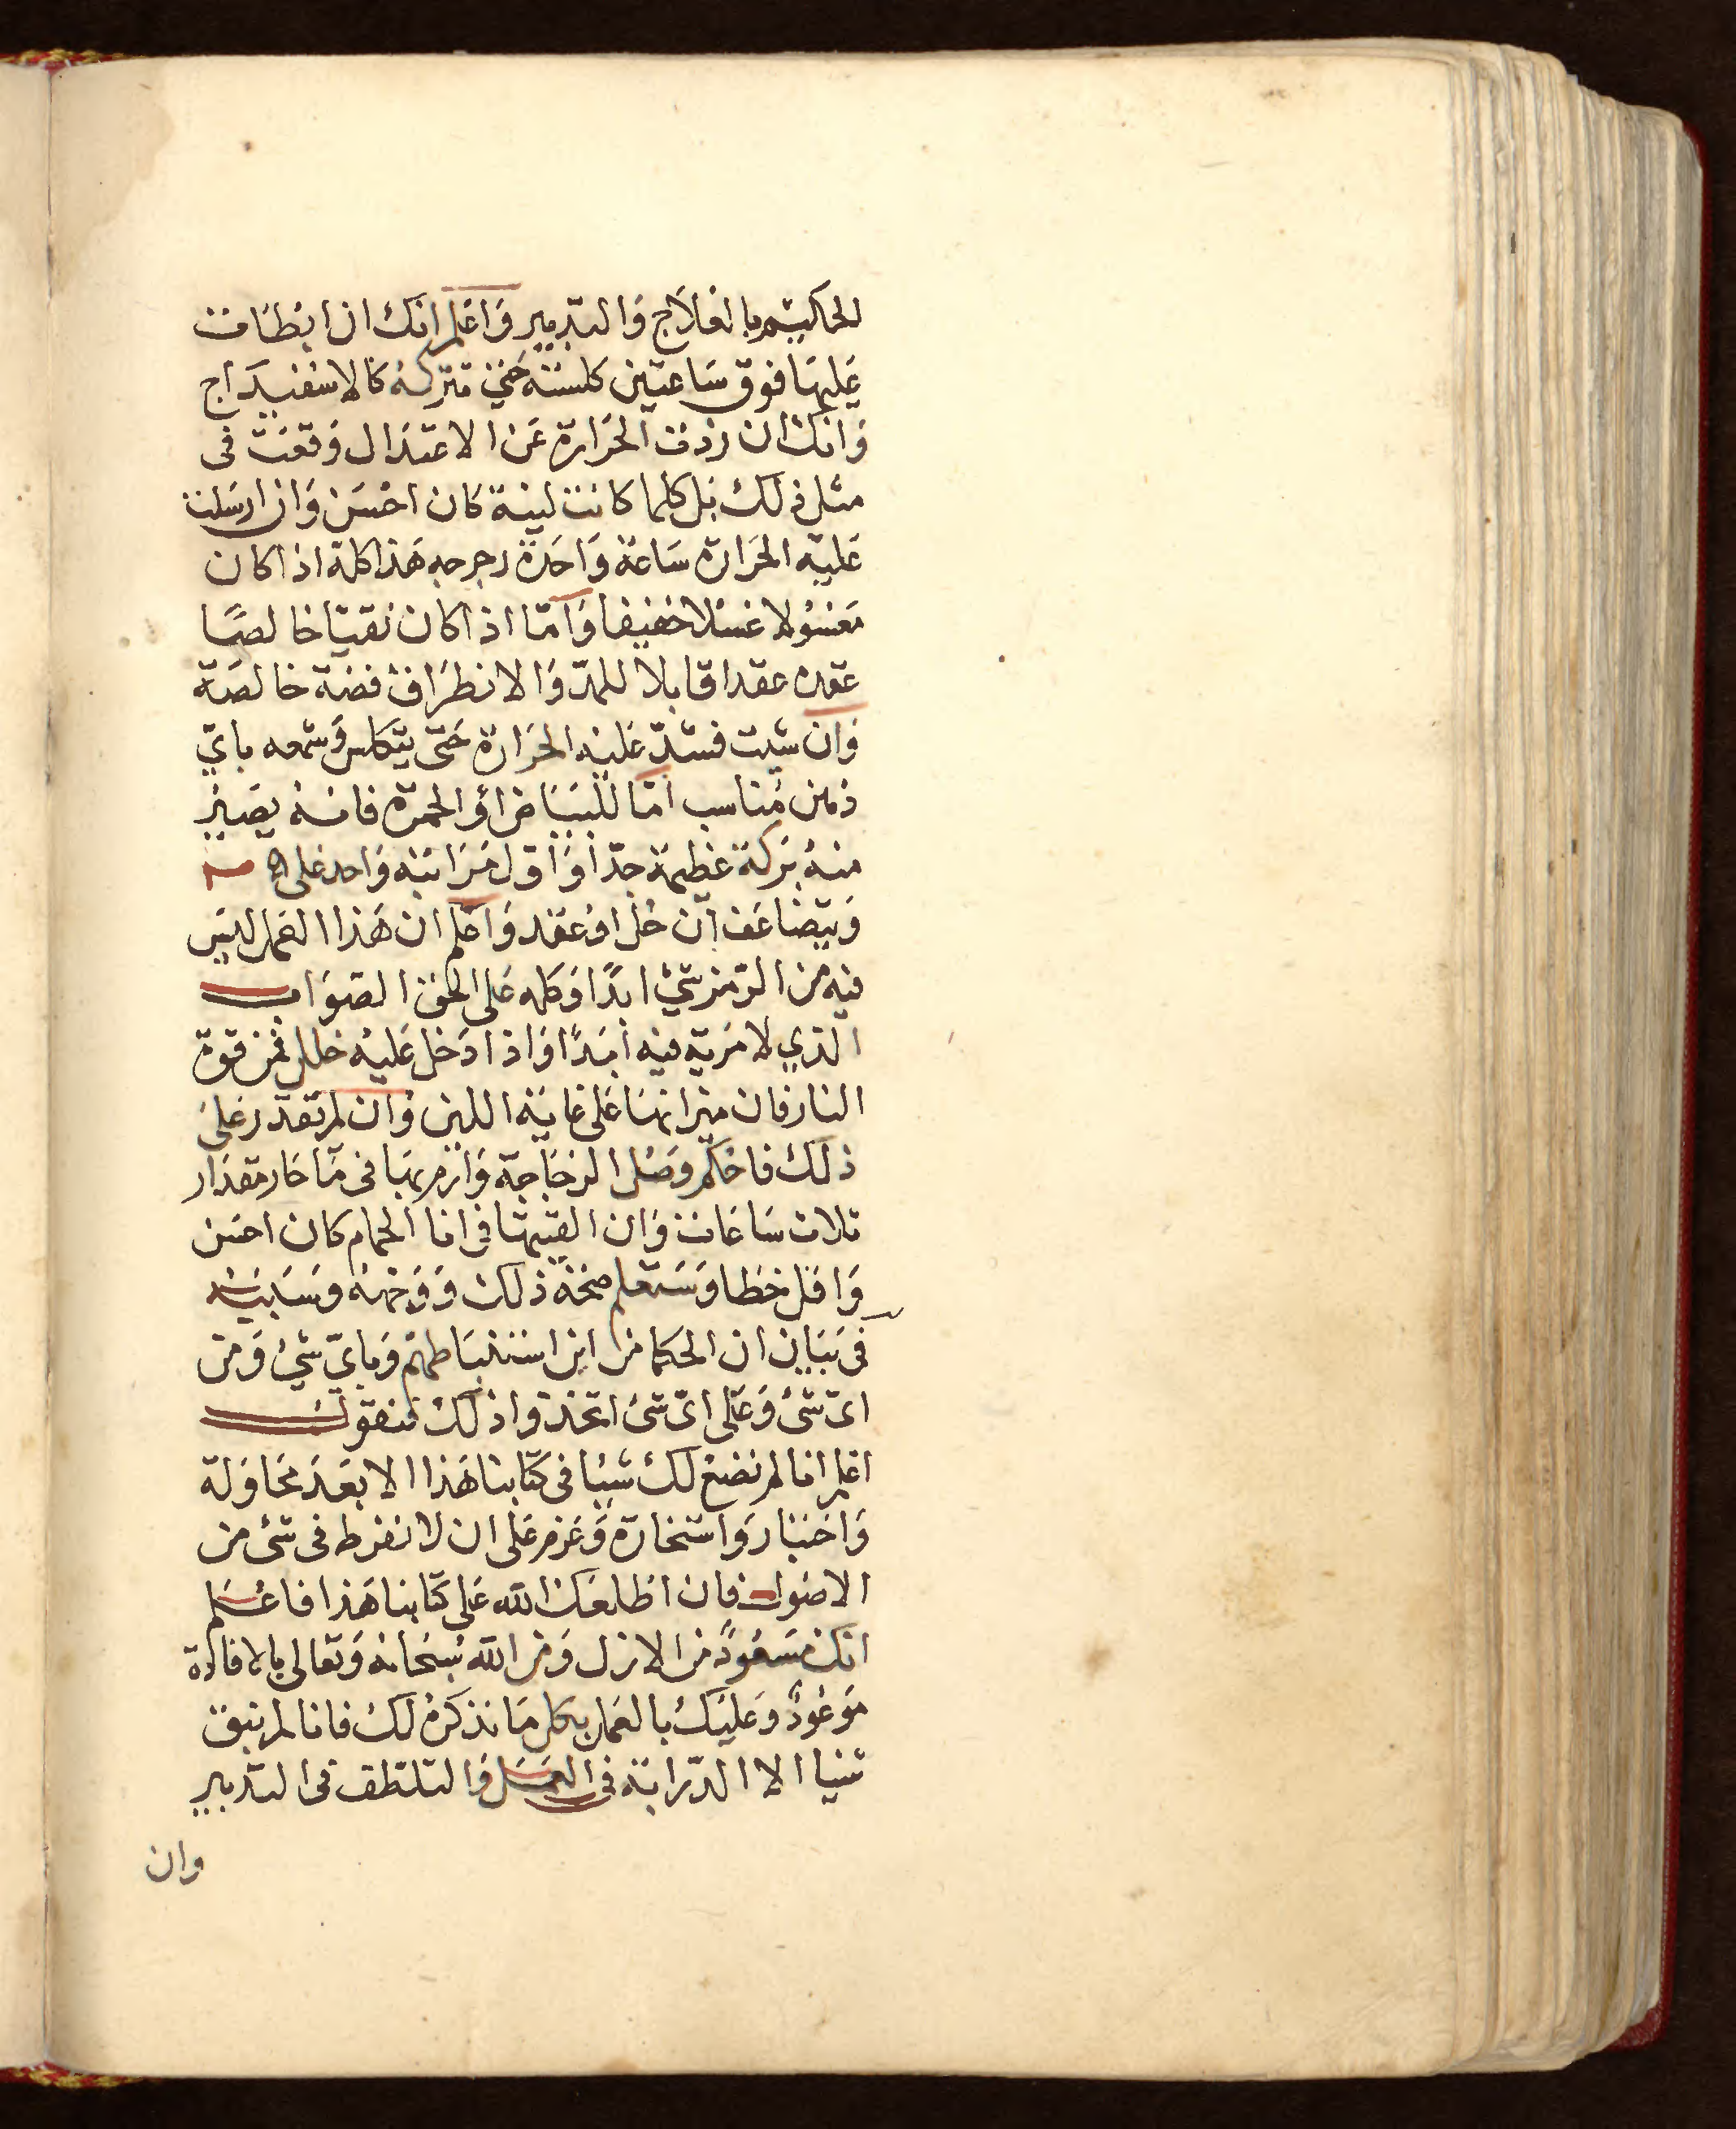 الحاكيتهم بالعلاج والتدبير واعلم انك ان ابطات
عليها فوق ساعتين كلسته حتى تتركه كالاسفيداج
وانك ان زدت الحرارة عن الاعتدال وقعت فى
مثل ذلك بل كلما كانت لينة كان احسن وان ارسلت
عليه الحرارة ساعة واحدة رجرجه هذا كله اذا كان
مغسولا غسلا خفيفا واما اذا كان نقيا خالصا
عقده عقدا قابلا للمد والانطراق فضة خالصة
وان شيت فشد عليه الحرارة حتى يتكلس وشمعه باي
دهن مناسب اما للبياض او الحمرة فانه يصير
منه بركة عظيمة جدا واول مراتبه واحد على
ويتضاعف ان حل او عقد واعلم ان هذا العمل ليس
فيه من الرمز شي ابدا وكله على الحق الصواب
الذي لا مرية فيه ابدا واذا دخل عليه خلل فمن قوة
النار فان ميزانها على غاية اللين وان لم تقدر على
ذلك فاحكم وصل الزجاجة وارم بها فى ما حار مقدار
ثلاث ساعات وان القيتها فى انا الحمام كان احسن
واقل خطا وستعلم صحة ذلك ووجهه وسببه
فى بيان ان الحكما من اين استنباطهم وباي شي ومن
اى شى وعلى اى شى اتخذوا ذلك فنقول
اعلم انا لم نضع لك شيا فى كتابنا هذا الا بعد محاولة
واختبار واستخارة وعزم على ان لا نفرط فى شى من
الاصول فان اطلعك الله على كتابنا هذا فاعلم
انك مسعود من الازل ومن الله سبحانه وتعالى بالافادة
موعود وعليك بالعمل بكل ما نذكره لك فانا لم نبق
شيا الا الدراية فى العمل والتلطف فى التدبير
وان